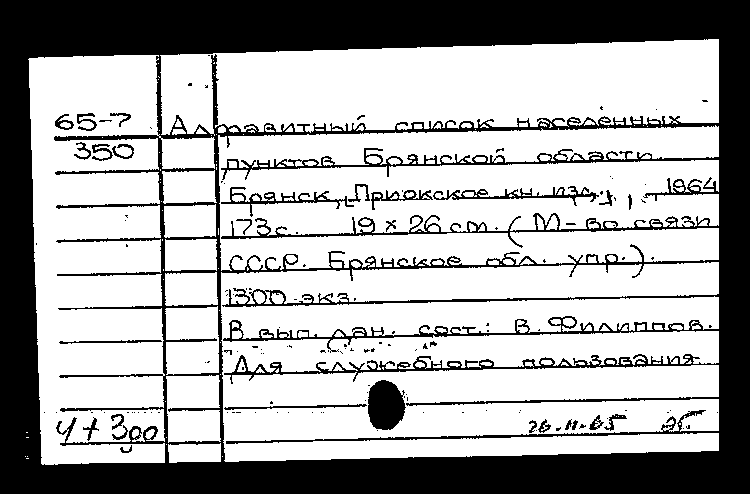 65-7
350
Алфавитный список населенных
пунктов Брянской области.
Брянск, Приокское кн. изд., 1964
173 с. 19 × 26 см. (М-во связи
СССР. Брянское обл. упр.).
1300 экз.
В вып. дан. сост.: В. Филиппов.
Для служебного пользования
4 + 3
26.11.65